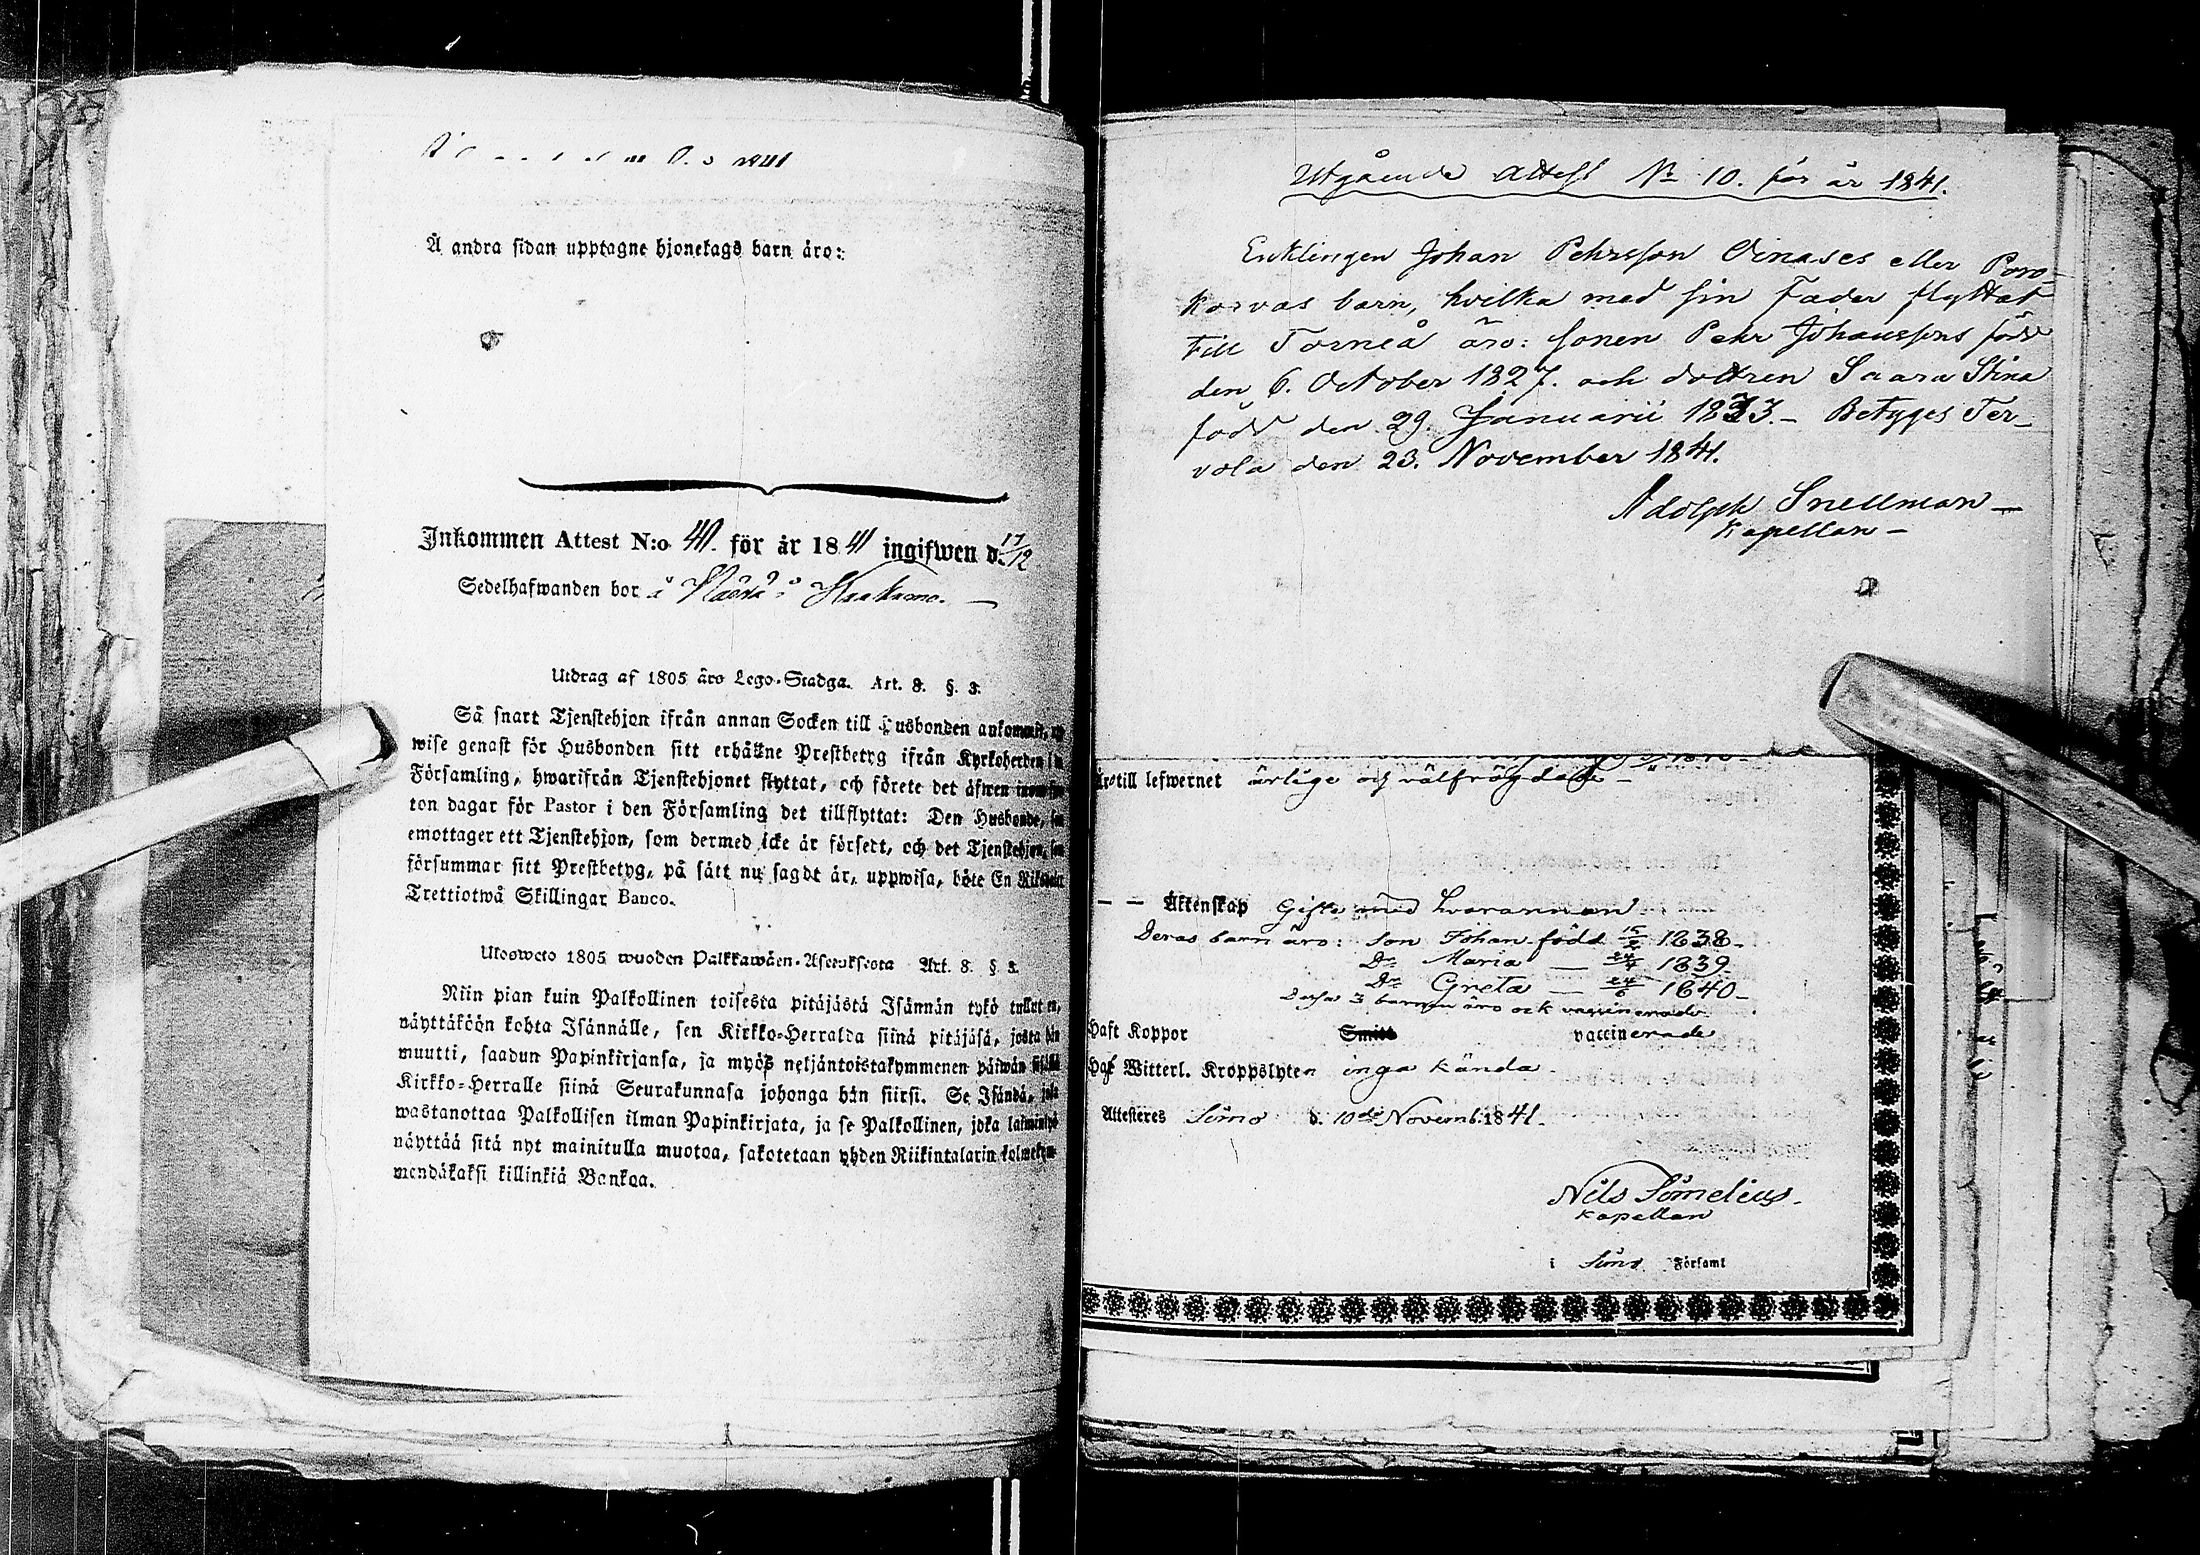 1841
Å andra sidan upptagne hjonelags barn äro:
Inkommen Attest N:o 40. för år 1841 ingifwen d. 17/12
Sedelhafwanden bor å i Kaakamo.
Utdrag af 1805 års Lego-Stadga. Art. 8. §. 3.
Så snart Tjenstehjon ifrån annan Socken till Husbonden ankommit,
wise genast för Husbonden sitt erhållne Prestbetyg ifrån Kyrkoherden i
Församling, hwarifrån Tjenstehjonet flyttat, och förete det äfwen inom
ton dagar för Pastor i den Församling det tillflyttat: Den Husbonde,
emottager ett Tjenstehjon, som dermed icke är försedt, och det Tjenstehjon,
försummar sitt Prestbetyg, på sätt nu sagdt är, uppwisa, böte En Riksdaler
Trettiotwå Skillingar Banco.
Ulosweto 1805 wuoden Palkkawäen-Asetuksesta Art. 8. § 3.
Niin pian kuin Palkollinen toisesta pitäjästä Isännän tykö tullut on,
näyttäköön kohta Isännälle, sen Kirkko-Herralda siinä pitäjäsä, josta hän
muutti, saadun Papinkirjansa, ja myös neljäntoistakymmenen päiwän
Kirkko-Herralle siinä Seurakunnasa johonga hän siirsi. Se Isändä, joka
wastanottaa Palkollisen ilman Papinkirjata, ja se Palkollinen, joka
näyttää sitä nyt mainitulla muotoa, sakotetaan yhden Riikintalarin kolmekym-
mendäkaksi killinkiä Bankoa.
Utgående Attest No 10. för år 1841.
Enklingen Johan Pehrsson Oinases eller Poro-
korvas barn, hvilka med sin Fader flyttat
till Torneå äro: sonen Pehr Johansson född
den 6. October 1827. och dottren Saara Stina
född den 29. Januarii 1833. - Betyges Ter-
vola den 23. November 1841.
Adolph Snellman
Kapellan
till lefwernet ärlige och välfrägdade
Äktenskap Gifte med hvarannan
Deras barn äro: Son Johan född 15/2 1838
Dr Maria 1839
Dr Greta 24/6 1840
Dessa 3 barnen äro ock vaccinerade.
Haft Koppor Smitt vaccinerade
Haf Witterl. Kroppslyten inga kända
Attesteres Simo d. 10de Novemb. 1841.
Nils Simelius
Kapellan
i Simo Församl